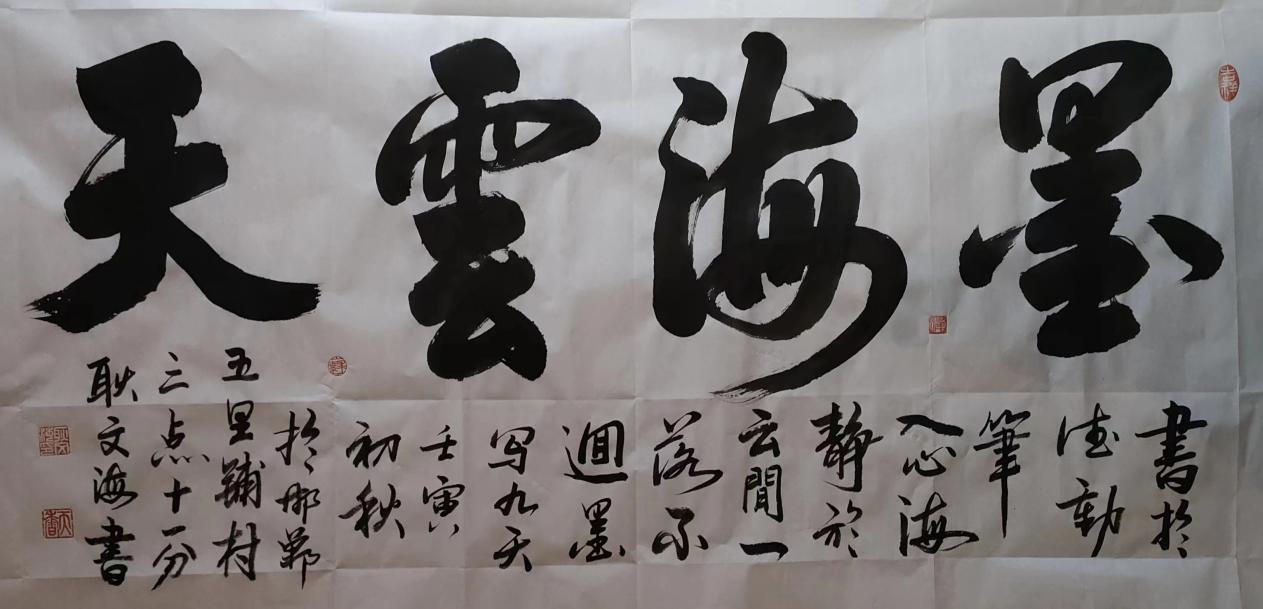 墨海雲天
書於
德動
筆
入心海
静於
云間一
落不
迴墨
写九天
壬寅
初秋
於邯鄲
五里鋪村
三点十一分
耿文海書